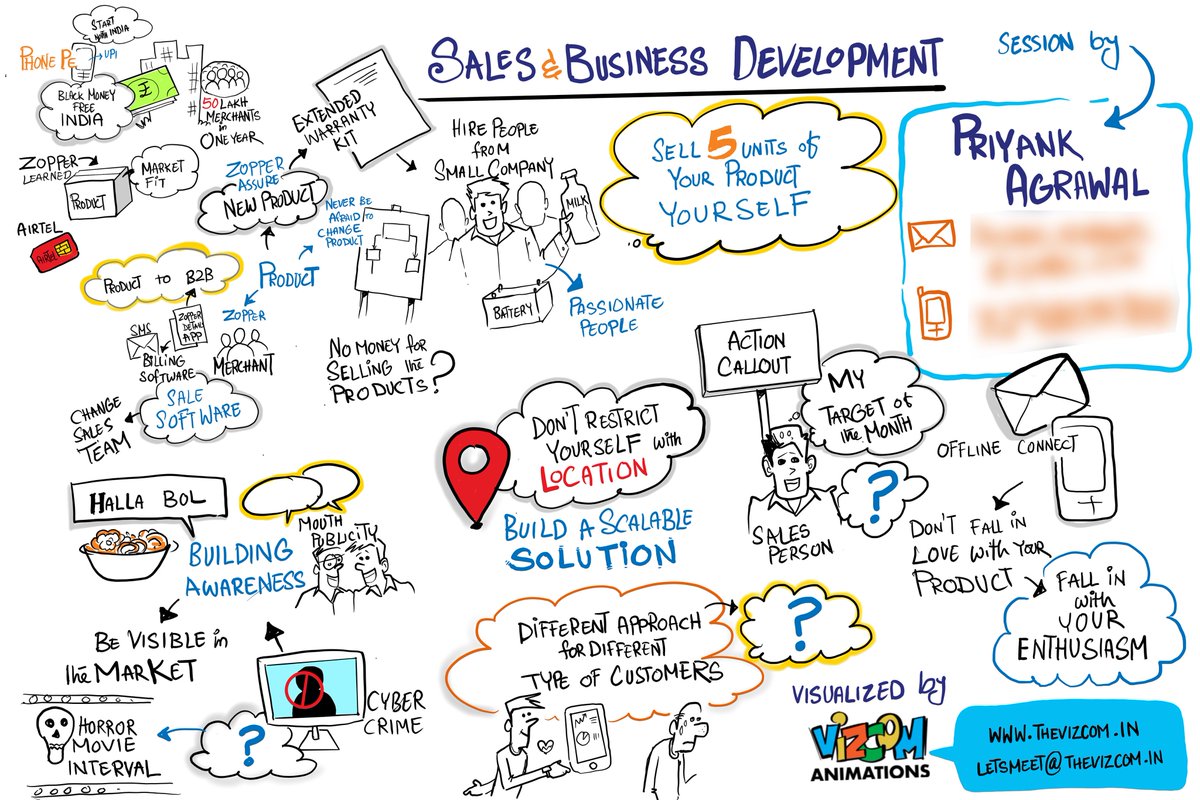 START
with INDIA
PHONE PE
UPI
BLACK MONEY
FREE
INDIA
₹
50 LAKH
MERCHANTS in
ONE YEAR
ZOPPER
LEARNED
PRODUCT
MARKET
FIT
AIRTEL
airtel
PRODUCT to B2B
SMS
ZOPPER
RETAIL
APP
BILLING
SOFTWARE
ZOPPER
MERCHANT
SALE
SOFTWARE
CHANGE
SALES
TEAM
PRODUCT
NEVER BE
AFRAID to
CHANGE
PRODUCT
ZOPPER
ASSURE
NEW PRODUCT
EXTENDED
WARRANTY
KIT
NO MONEY for
SELLING the
PRODUCTS?
SALES & BUSINESS DEVELOPMENT
HIRE PEOPLE
from
SMALL COMPANY
MILK
BATTERY
PASSIONATE
PEOPLE
SELL 5 UNITS of
YOUR PRODUCT
YOURSELF
SESSION by
PRIYANK
AGRAWAL
DON'T RESTRICT
YOURSELF with
LOCATION
BUILD A SCALABLE
SOLUTION
ACTION
CALLOUT
MY
TARGET of
the MONTH
?
SALES
PERSON
OFFLINE CONNECT
DON'T FALL in
LOVE with YOUR
PRODUCT
FALL in
with
YOUR
ENTHUSIASM
HALLA BOL
BUILDING
AWARENESS
MOUTH
PUBLICITY
BE VISIBLE in
the MARKET
CYBER
CRIME
?
HORROR
MOVIE
INTERVAL
DIFFERENT APPROACH
for DIFFERENT
TYPE of CUSTOMERS
?
VISUALIZED by
VIZCOM
ANIMATIONS
WWW.THEVIZCOM.IN
LETSMEET@THEVIZCOM.IN